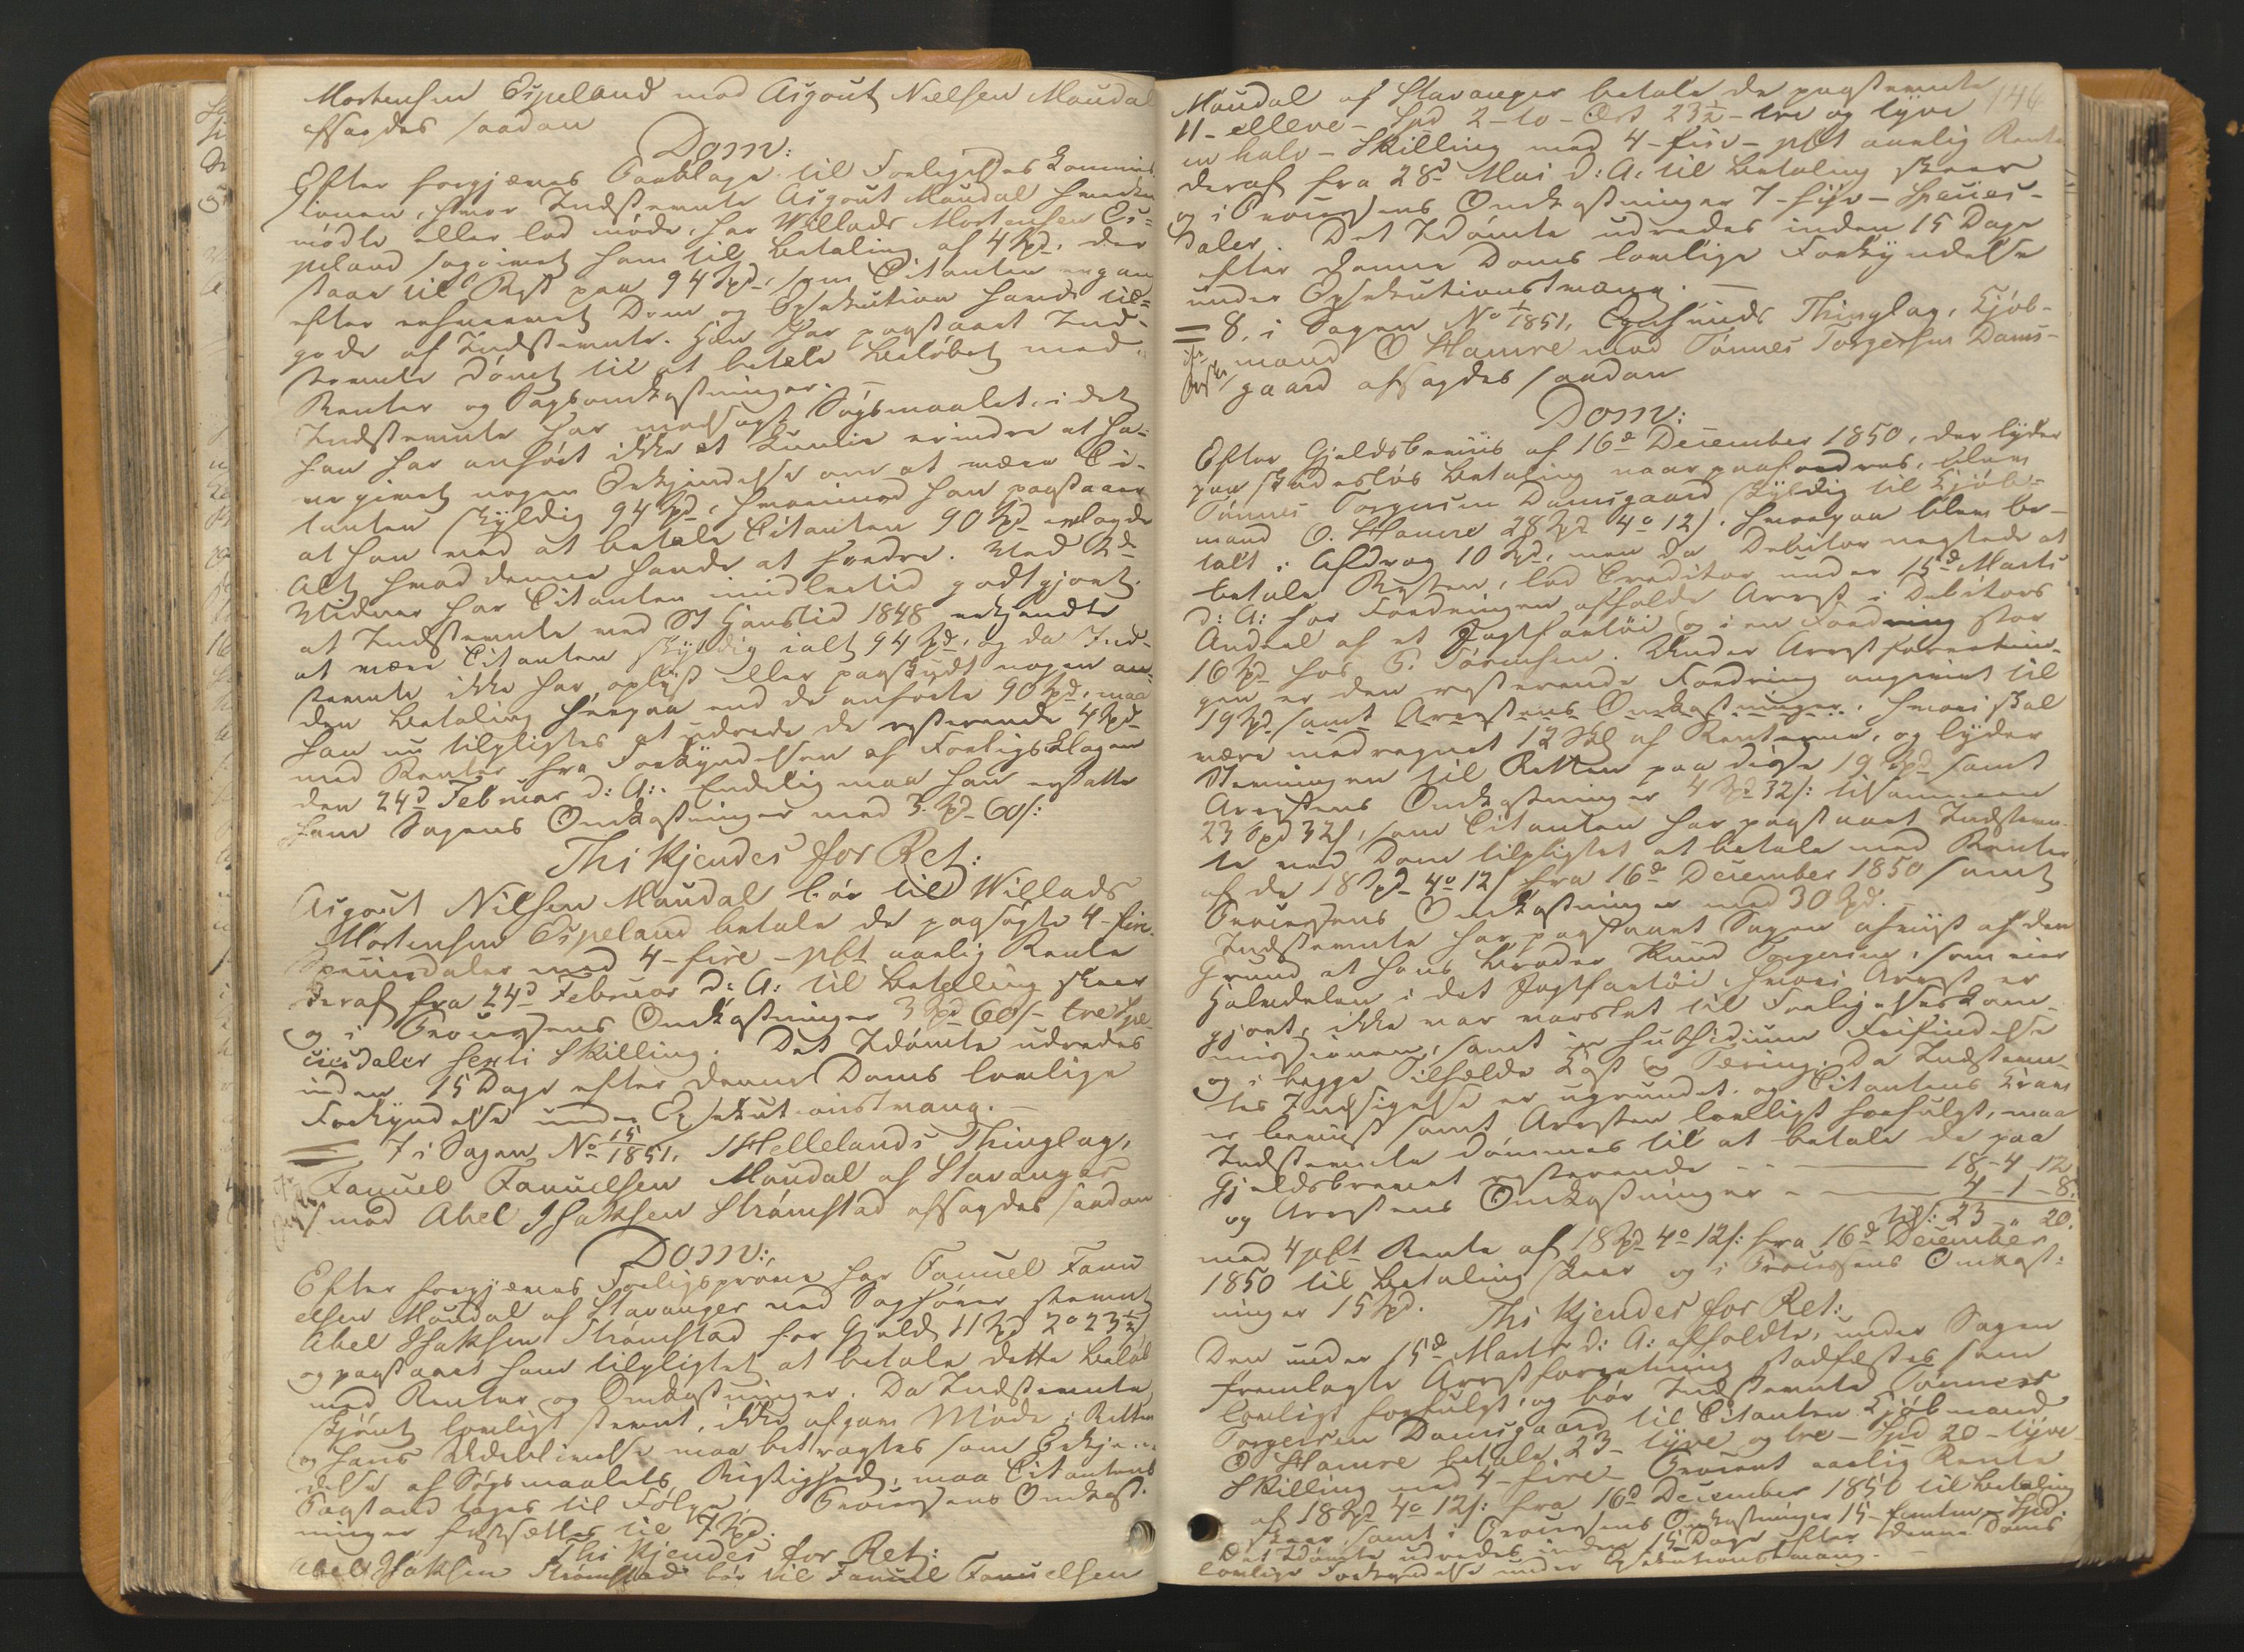 Mortensen Espeland mod Asgout Nielsen Maudal
afsagdes saadan
Dom:
Efter forgjæves Paaklage til Forligelses Kommis
sionen, hvor Indstevnte Asgout Maudal hverken
mødte eller lod møde, har Willads Mortensen Es-
peland sagsøgt ham til Betaling af 4 Spd, der
staar til Rest paa 94 Spd, som Citanten
efter erhvervet Dom og Exekution havde til-
gode af Indstevnte. Han har paastaaet Ind-
stevnte dømt til at betale Beløbet med
Renter og Sagsomkostninger. –
Indstevnte har modsagt Søgsmaalet, idet
han har anført ikke at kunne erindre at ha-
ve givet nogen Erkjendelse om at være Ci-
tanten skyldig 94 Spd, hvorimod han paastaaer
at han med at betale Citanten 90 Spd erlagde
Alt hvad denne havde at fordre. Med 2de
Vidner har Citanten imidlertid godtgjort,
at Indstevnte ved St Hanstid 1848 erkjendte
at være Citanten skyldig ialt 94 Spd, og da Ind-
stevnte ikke har oplyst eller paaskudt nogen an-
den Betaling herpaa end de anførte 90 Spd, maa
han nu tilpligtes at udrede de resterende 4 Spd
med Renter fra Forkyndelsen af Forligsklagen
den 24d Februar d: A:. Endelig maa han erstatte
ham Sagens Omkostninger med 3 Spd 60 s:
Thi kjendes for Ret:
Asgout Nilsen Maudal bør til Willads
Mortensen Espeland betale de paasøgte 4 - fire
Speciesdaler med 4 - fire - pCt aarlig Rente
deraf fra 24d Februar d: A: til Betaling skeer
og i Processens Omkostninger 3 Spd 60 s - tre Spe-
ciesdaler sexti Skilling. Det Idømte udredes
inden 15 Dage efter denne Doms lovlige
Forkyndelse under Exekutionstvang. –
7 i Sagen No 15/1851, Hellelands Thinglag,
Samuel Samuelsen Maudal af Stavanger
mod Abel Isaksen Strømstad afsagdes saadan
Dom:
Efter forgjæves Forligsprøve har Samuel Samu
elsen Maudal af Stavanger ved Sagfører stevnt
Abel Isaksen Strømstad for Gjeld 11 Spd 2 o 23½ s
og paastaaet ham tilpligtet at betale dette Beløb
med Renter og Omkostninger. Da Indstevnte,
skjønt lovligt stevnt, ikke afgav Møde i Retten
og hans Udeblivelse maa betragtes som Erkjen-
delse af Søgsmaalets Rigtighed, maa Citantens
Paastand tages til Følge. Processens Omkost-
ninger fastsættes til 7 Spd.
Thi kjendes for Ret:
Abel Isaksen Strømstad bør til Samuel Samuelsen
146
Maudal af Stavanger betale de paastevnte
11 - elleve - Spd 2 - to - Ort 23½ - tre og tyve
en halv - Skilling med 4 - fire - pCt aarlig Rente
deraf fra 28d Mai d: A: til Betaling skeer
og i Processens Omkostninger 7 - syv - Species-
daler. Det Idømte udredes inden 15 Dage
efter denne Doms lovlige Forkyndelse
under Exekutionstvang. –
8, i Sagen No 1/1851, Egersunds Thinglag, Kjøb-
mand O Hamre mod Tønnes Torgersen Dams-
gaard afsagdes saadan
Dom:
Efter Gjeldsbeviis af 16de December 1850, der lyder
paa skadesløs Betaling naar paafordres, blev
Tønnes Torgersen Damsgaard skyldig til Kjøb-
mand O. Hamre 28 Spd 4 o 12 s. Hvorpaa blev be-
talt i Afdrag 10 Spd, men da Debitor negtede at
betale Resten, lod Creditor under 15de Marts
d: A: for Fordringen afholde Arrest i Debitors
Andeel af et Jagtfartøi og i en Fordring stor
16 Spd hos P. Sørensen. Under Arrestforretnin-
gen er den resterende Fordring angivet til
19 Spd samt Arrestens Omkostninger, hvori skal
være medregnet 12 Skl af Renterne, og lyder
Stevningen til Retten paa disse 19 Spd samt
Arrestens Omkostninger 4 Spd 32 s: tilsammen
23 Spd 32 s, som Citanten har paastaaet Indstevn-
te ved Dom tilpligtet at betale med Renter
af de 18 Spd 4 o 12 s fra 16de December 1850 samt
Processens Omkostninger med 30 Spd. –
Indstevnte har paastaaet Sagen afviist af den
Grund at hans Broder Knud Torgersen, som eier
Halvdelen i det Jagtfartøi, hvori Arrest er
gjort, ikke var varslet til Forligelseskom-
missionen, samt in subsidium Frifindelse
og i begge Tilfælde Kost og Tæring. Da Indstevn-
tes Indsigelse er ugrundet, og Citantens Krav
er beviist samt Arresten lovligt forfulgt, maa
Indstevnte dømmes til at betale de paa
Gjeldsbrevet resterende - - 18 - 4 12
og Arrestens Omkostninger - 4 - 1 - 8.
tils: 23 " 20.
med 4 pCt Rente af 18 Spd 4 o 12 s: fra 16de December
1850 til Betaling skeer og i Processens Omkost-
ninger 15 Spd. Thi kjendes for Ret:
Den under 15de Marts d: A: afholdte, under Sagen
fremlagte Arrestforretning stadfæstes som
lovligt forfulgt, og bør Indstevnte Tønnes
Torgersen Damsgaard til Citanten Kjøbmand
O Hamre betale 23 - tyve og tre - Spd 20 - tyve
Skilling med 4 - fire - Procent aarlig Rente
af 18 Spd 4 o 12 s: fra 16d December 1850 til Betaling
skeer samt i Processens Omkostninger 15 - femten - Spd.
Det Idømte udredes inden 15 Dage efter denne Doms
lovlige Forkyndelse under Exekutionstvang. –